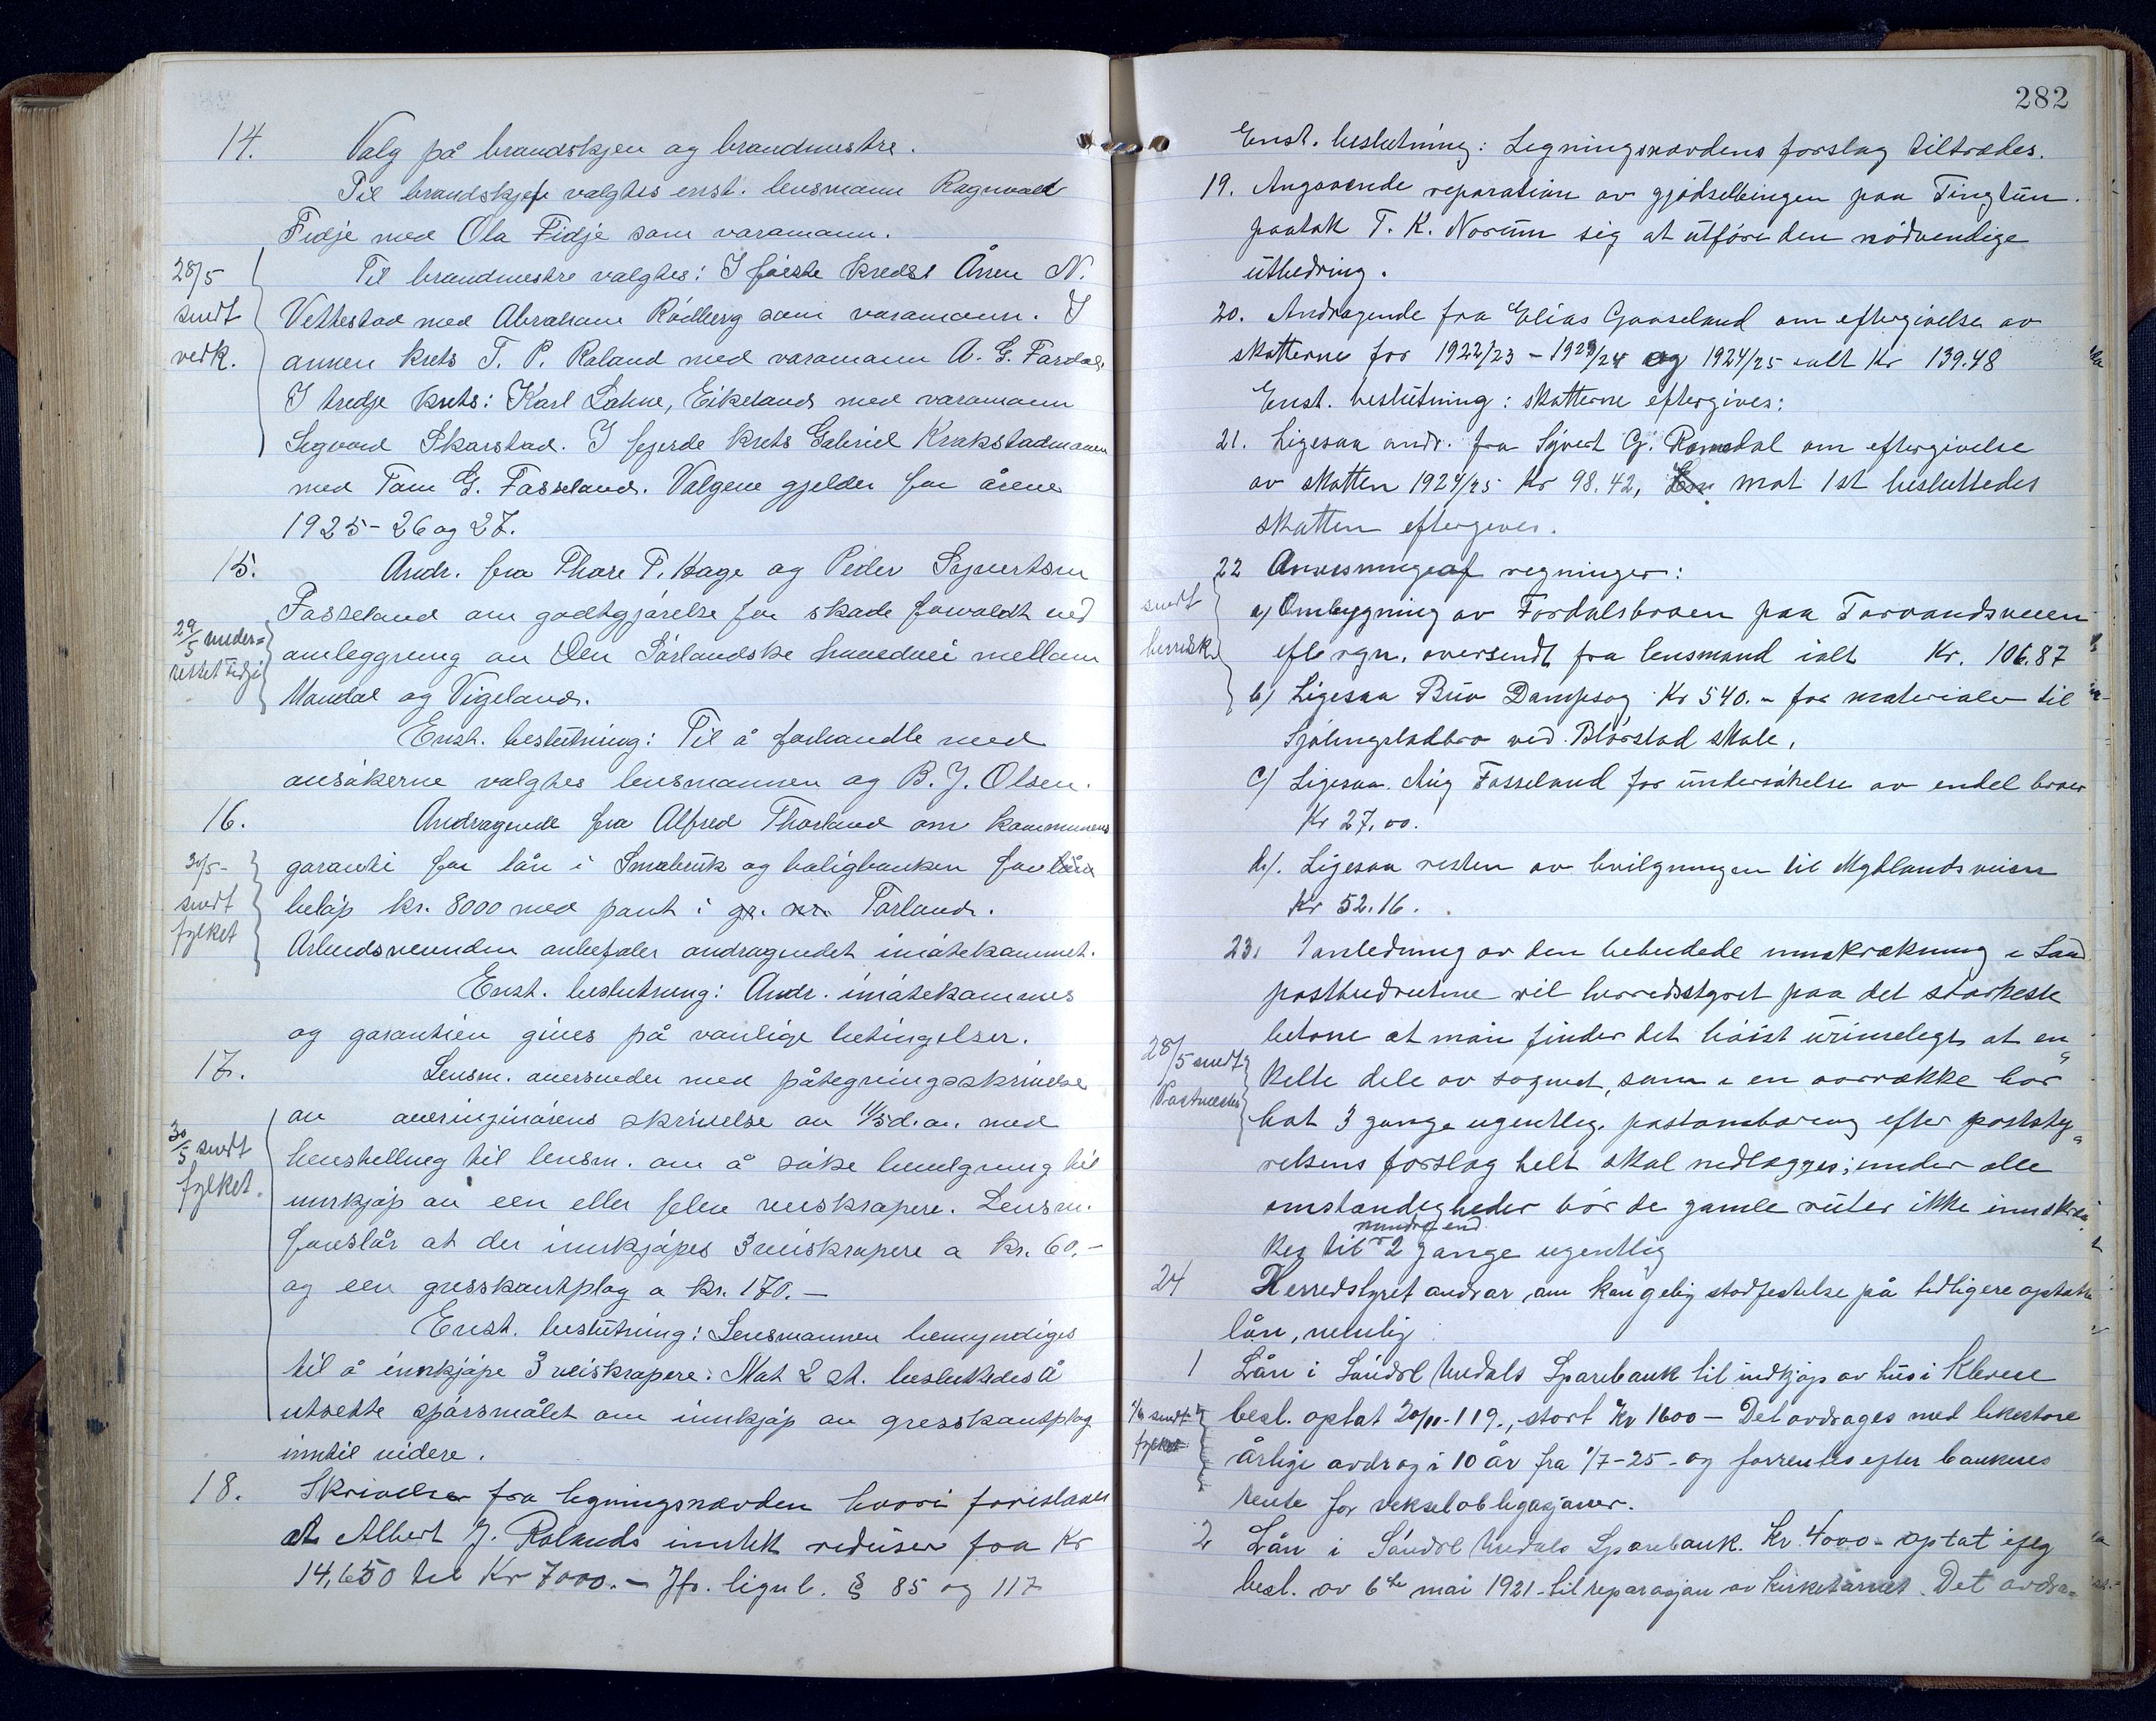 14. Valg på brandskjen og brandmestre.
Til brandskjef valgtes enst. lensmann Ragnvald
Fidje med Ola Fidje som varamann.
28/5
sendt
vedk.
Til brandmestre valgtes: I første kreds Ånen N.
Vettestad med Abraham Rödberg som varamann. I
annen krets T. P. Roland med varamann A. G. Fardal.
I tredje krets: Karl Lohne, Eikeland med varamann
Sigvard Skarstad. I fjerde krets Gabriel Krakstadmoen
med Tom G. Fasseland. Valgene gjelder for årene
1925-26 og 27.
15. Andr. fra Thore T. Hage og Peder Syvertsen
Fasseland om godtgjörelse for skade forvoldt ved
29/5 under=
rettet Fidje
omleggning av Den Sörlandske hovedvei mellem
Mandal og Vigeland.
Enst. beslutning: Til å forhandle med
ansökerne valgtes lensmannen og B. J. Olsen.
16. Andragende fra Alfred Thorland om kommunens
30/5-
sendt
fylket
garanti for lån i Småbruk og boligbanken for
belöp kr. 8000 med pant i gr. nr. Torland.
Arbeidsnemnden anbefaler andragendet imötekommet.
Enst. beslutning: Andr. imötekommes
og garantien gives på vanlige betingelser.
17. Lensm. oversender med påtegningsskrivelse
30/5 sendt
fylket.
av overingeniörens skrivelse av 11/5 d.a. med
henstilling til lensm. om å söke bevilgning til
innkjöp av een eller flere veiskrapere. Lensm.
foreslår at der innkjöpes 3 veiskrapere a kr. 60.-
og een gresskantplog a kr. 170.-
Enst. beslutning: Lensmannen bemyndiges
til å innkjöpe 3 veiskrapere. Mot 2 st. besluttedes å
utsette spörsmålet om innkjöp av gresskantplog
inntil videre.
18. Skrivelse fra ligningsnævnden hvori foreslaaes
at Albert J. Rolands inntekt reduser fra Kr
14,650 til Kr 7000.- Jfr. lignl. § 85 og 117
282
Enst. beslutning: Legningsnævndens forslag tiltrædes.
19. Angaaende reparation av gjödselbingen paa Tingtun.
paatok T. K. Norum sig at utföre den nödvendige
utbedring.
20. Andragende fra Elias Gaaseland om eftergivelse av
skatterne for 1922/23 - 1923/24 og 1924/25 ialt Kr 139.48
Enst. beslutning: skatterne eftergives:
21. Ligesaa andr. fra Syvert G. Romedal om eftergivelse
av skatten 1924/25 Kr 98.42, mot 1 st besluttedes
skatten eftergives.
22 Anvisninge af regninger:
sendt
herredsk.
a) Ombygning av Fordalsbroen paa Torvandsveien
efte regn. oversendt fra lensmand ialt Kr. 106.87
b) Ligesaa Buö Dampsag Kr 540.- for materialer til
Sjölingstadbro ved Blörstad skole,
c) Ligesaa Aug Fasseland for undersökelse av endel broer
Kr 27.00.
d). Ligesaa resten av bevilgningen til Myklandsveien
Kr 52.16.
23. I anledning av den bebudede innskrækning i Land
postbudrutene vil herredsstyret paa det sterkeste
betone at man finder det höist urimeligt at en
28/5 sendt
Postmester
kelte dele av sognet, som i en aarrække har
hat 3 gange ugentlig postombæring efter poststy
relsens forslag helt skal nedlægges; under alle
omstændigheder bör de gamle ruter ikke innskræn
mindre end
kes til 2 gange ugentlig
24 Herredstyret andrar om kongelig stadfestelse på tidligere optatte
lån, nemlig
1 Lån i Söndre Undals Sparebank til indkjöp av hus i Klevene
sendt
fylket
besl. optat 20/11-119., stort Kr 1600 - Det avdrages med likestore
årlige avdrag i 10 år fra 1/7-25 - og forrentes efter bankens
rente for vekselobligasjoner.
2 Lån i Söndre Undals Sparebank. Kr. 4000- optat ifølg
besl. av 6te mai 1921 - til reparasjon av kirketårnet. Det avdra=